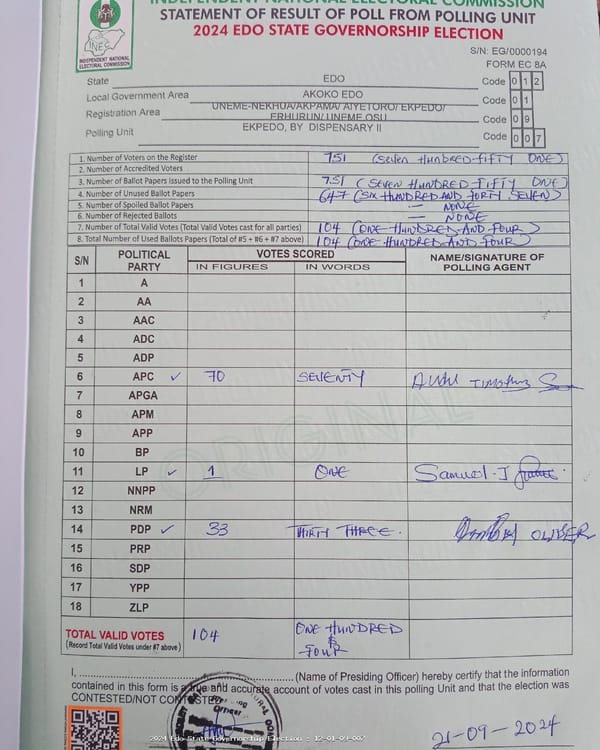 INDEPENDENT NATIONAL ELECTORAL COMMISSION
STATEMENT OF RESULT OF POLL FROM POLLING UNIT
2024 EDO STATE GOVERNORSHIP ELECTION
INEC
INDEPENDENT NATIONAL
ELECTORAL COMMISSION
S/N: EG/0000194
FORM EC 8A
State EDO Code 0 1 2
Local Government Area AKOKO EDO Code 0 1
Registration Area UNEME-NEKHUA/AKPAMA/ AIYETORO/ EKPEDO/ ERHURUN/ UNEME OSU Code 0 9
Polling Unit EKPEDO, BY DISPENSARY II Code 0 0 7
1. Number of Voters on the Register 751 (SEVEN HUNDRED-FIFTY ONE)
2. Number of Accredited Voters
3. Number of Ballot Papers Issued to the Polling Unit 751 (SEVEN HUNDRED FIFTY ONE)
4. Number of Unused Ballot Papers 647 (SIX HUNDRED AND FORTY SEVEN)
5. Number of Spoiled Ballot Papers — NONE
6. Number of Rejected Ballots — NONE
7. Number of Total Valid Votes (Total Valid Votes cast for all parties) 104 (ONE HUNDRED AND FOUR)
8. Total Number of Used Ballots Papers (Total of #5 + #6 + #7 above) 104 (ONE HUNDRED AND FOUR)
S/N POLITICAL PARTY VOTES SCORED NAME/SIGNATURE OF POLLING AGENT
IN FIGURES IN WORDS
1 A
2 AA
3 AAC
4 ADC
5 ADP
6 APC ✓ 70 SEVENTY
7 APGA
8 APM
9 APP
10 BP
11 LP ✓ 1 ONE Samuel J
12 NNPP
13 NRM
14 PDP ✓ 33 THIRTY THREE. OLIVER
15 PRP
16 SDP
17 YPP
18 ZLP
ORIGINAL
TOTAL VALID VOTES 104 ONE HUNDRED & FOUR
(Record Total Valid Votes under #7 above)
I, (Name of Presiding Officer) hereby certify that the information
contained in this form is a true and accurate account of votes cast in this polling Unit and that the election was
CONTESTED/NOT CONTESTED
21-09-2024
2024 Edo State Governorship Election : 12-01-09-007